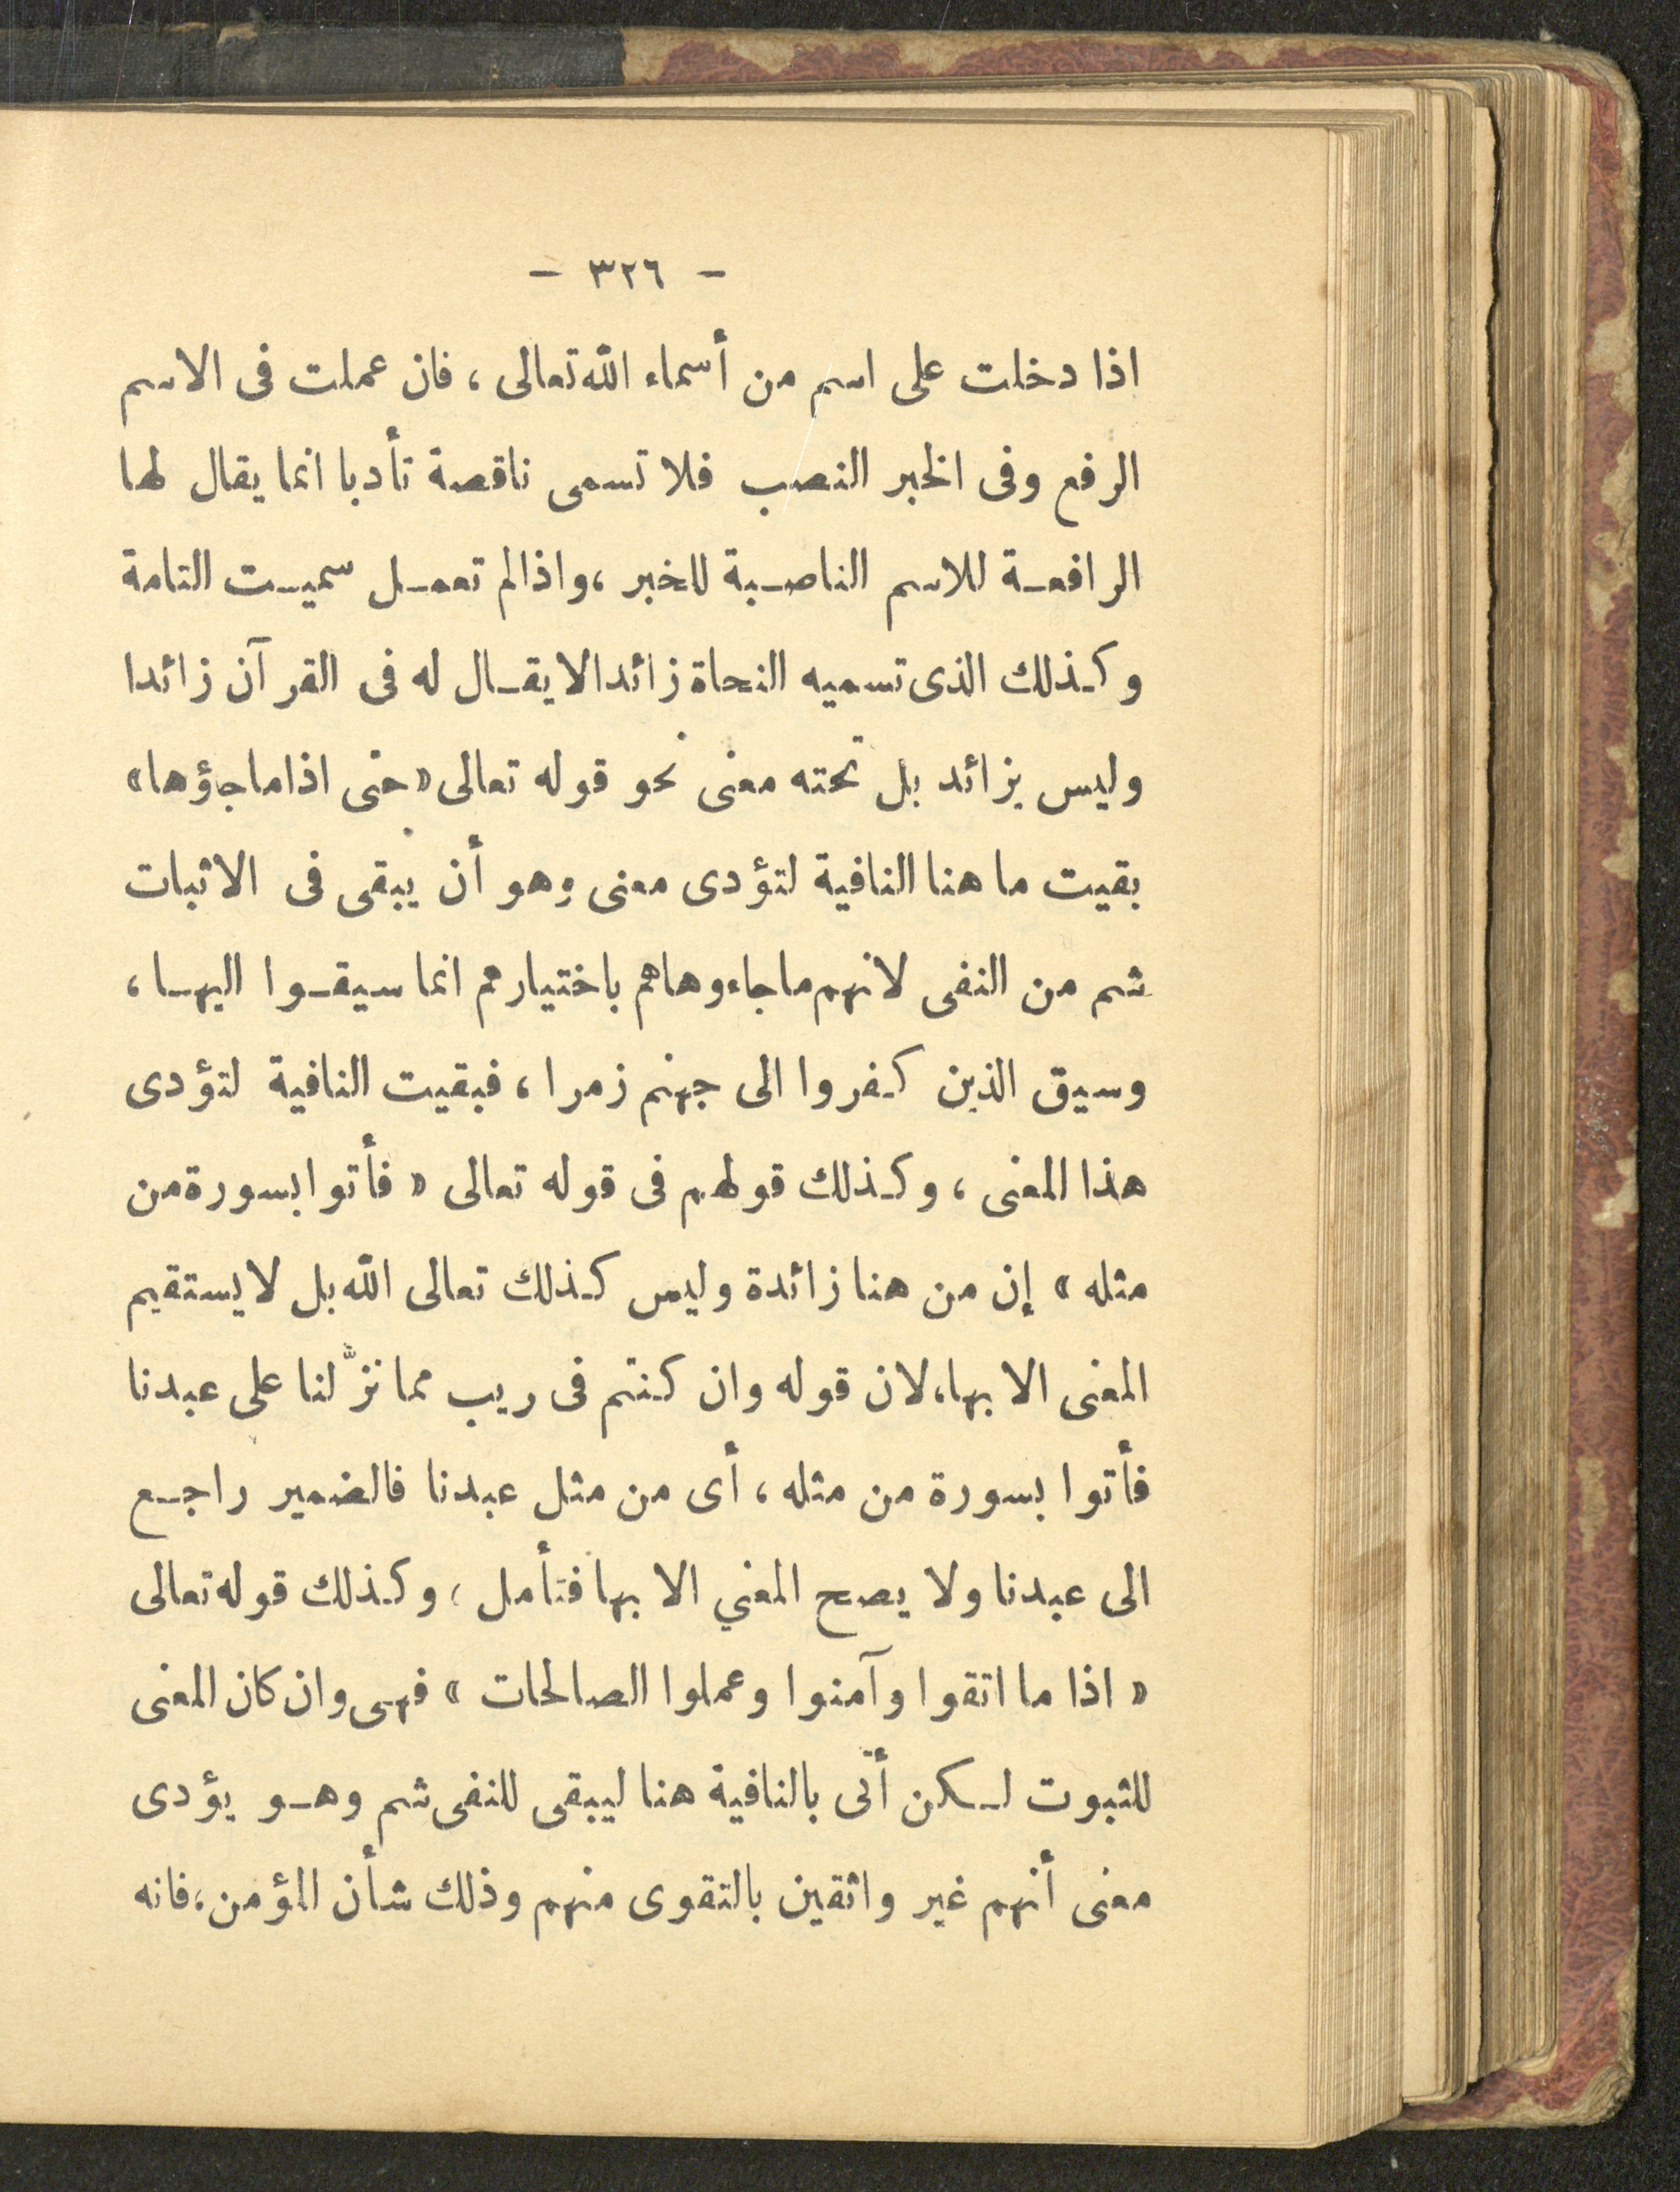 - ٣٢٦ -
اذا دخلت على اسم من أسماء الله تعالى ، فان عملت فى الاسم
الرفع وفى الخبر النصب فلا تسمى ناقصة تأدبا انما يقال لها
الرافعة للاسم الناصبة للخبر ، واذا لم تعمل سميت التامة
وكذلك الذى تسميه النحاة زائدا لا يقال له فى القرآن زائدا
وليس بزائد بل تحته معنى نحو قوله تعالى « حتى اذا ما جاؤها »
بقيت ما هنا النافية لتؤدى معنى وهو أن يبقى فى الاثبات
شم من النفى لانهم ما جاءوها هم باختيارهم انما سيقوا اليها ،
وسيق الذين كفروا الى جهنم زمرا ، فبقيت النافية لتؤدى
هذا المعنى ، وكذلك قولهم فى قوله تعالى « فأتوا بسورة من
مثله » إن من هنا زائدة وليس كذلك تعالى الله بل لا يستقيم
المعنى الا بها ، لان قوله وان كنتم فى ريب مما نزَّلنا على عبدنا
فأتوا بسورة من مثله ، أى من مثل عبدنا فالضمير راجع
الى عبدنا ولا يصح المعني الا بها فتأمل ، وكذلك قوله تعالى
« اذا ما اتقوا وآمنوا وعملوا الصالحات » فهى وان كان المعنى
للثبوت لكن أتى بالنافية هنا ليبقى للنفى شم وهو يؤدى
معنى أنهم غير واثقين بالتقوى منهم وذلك شأن المؤمن ، فانه